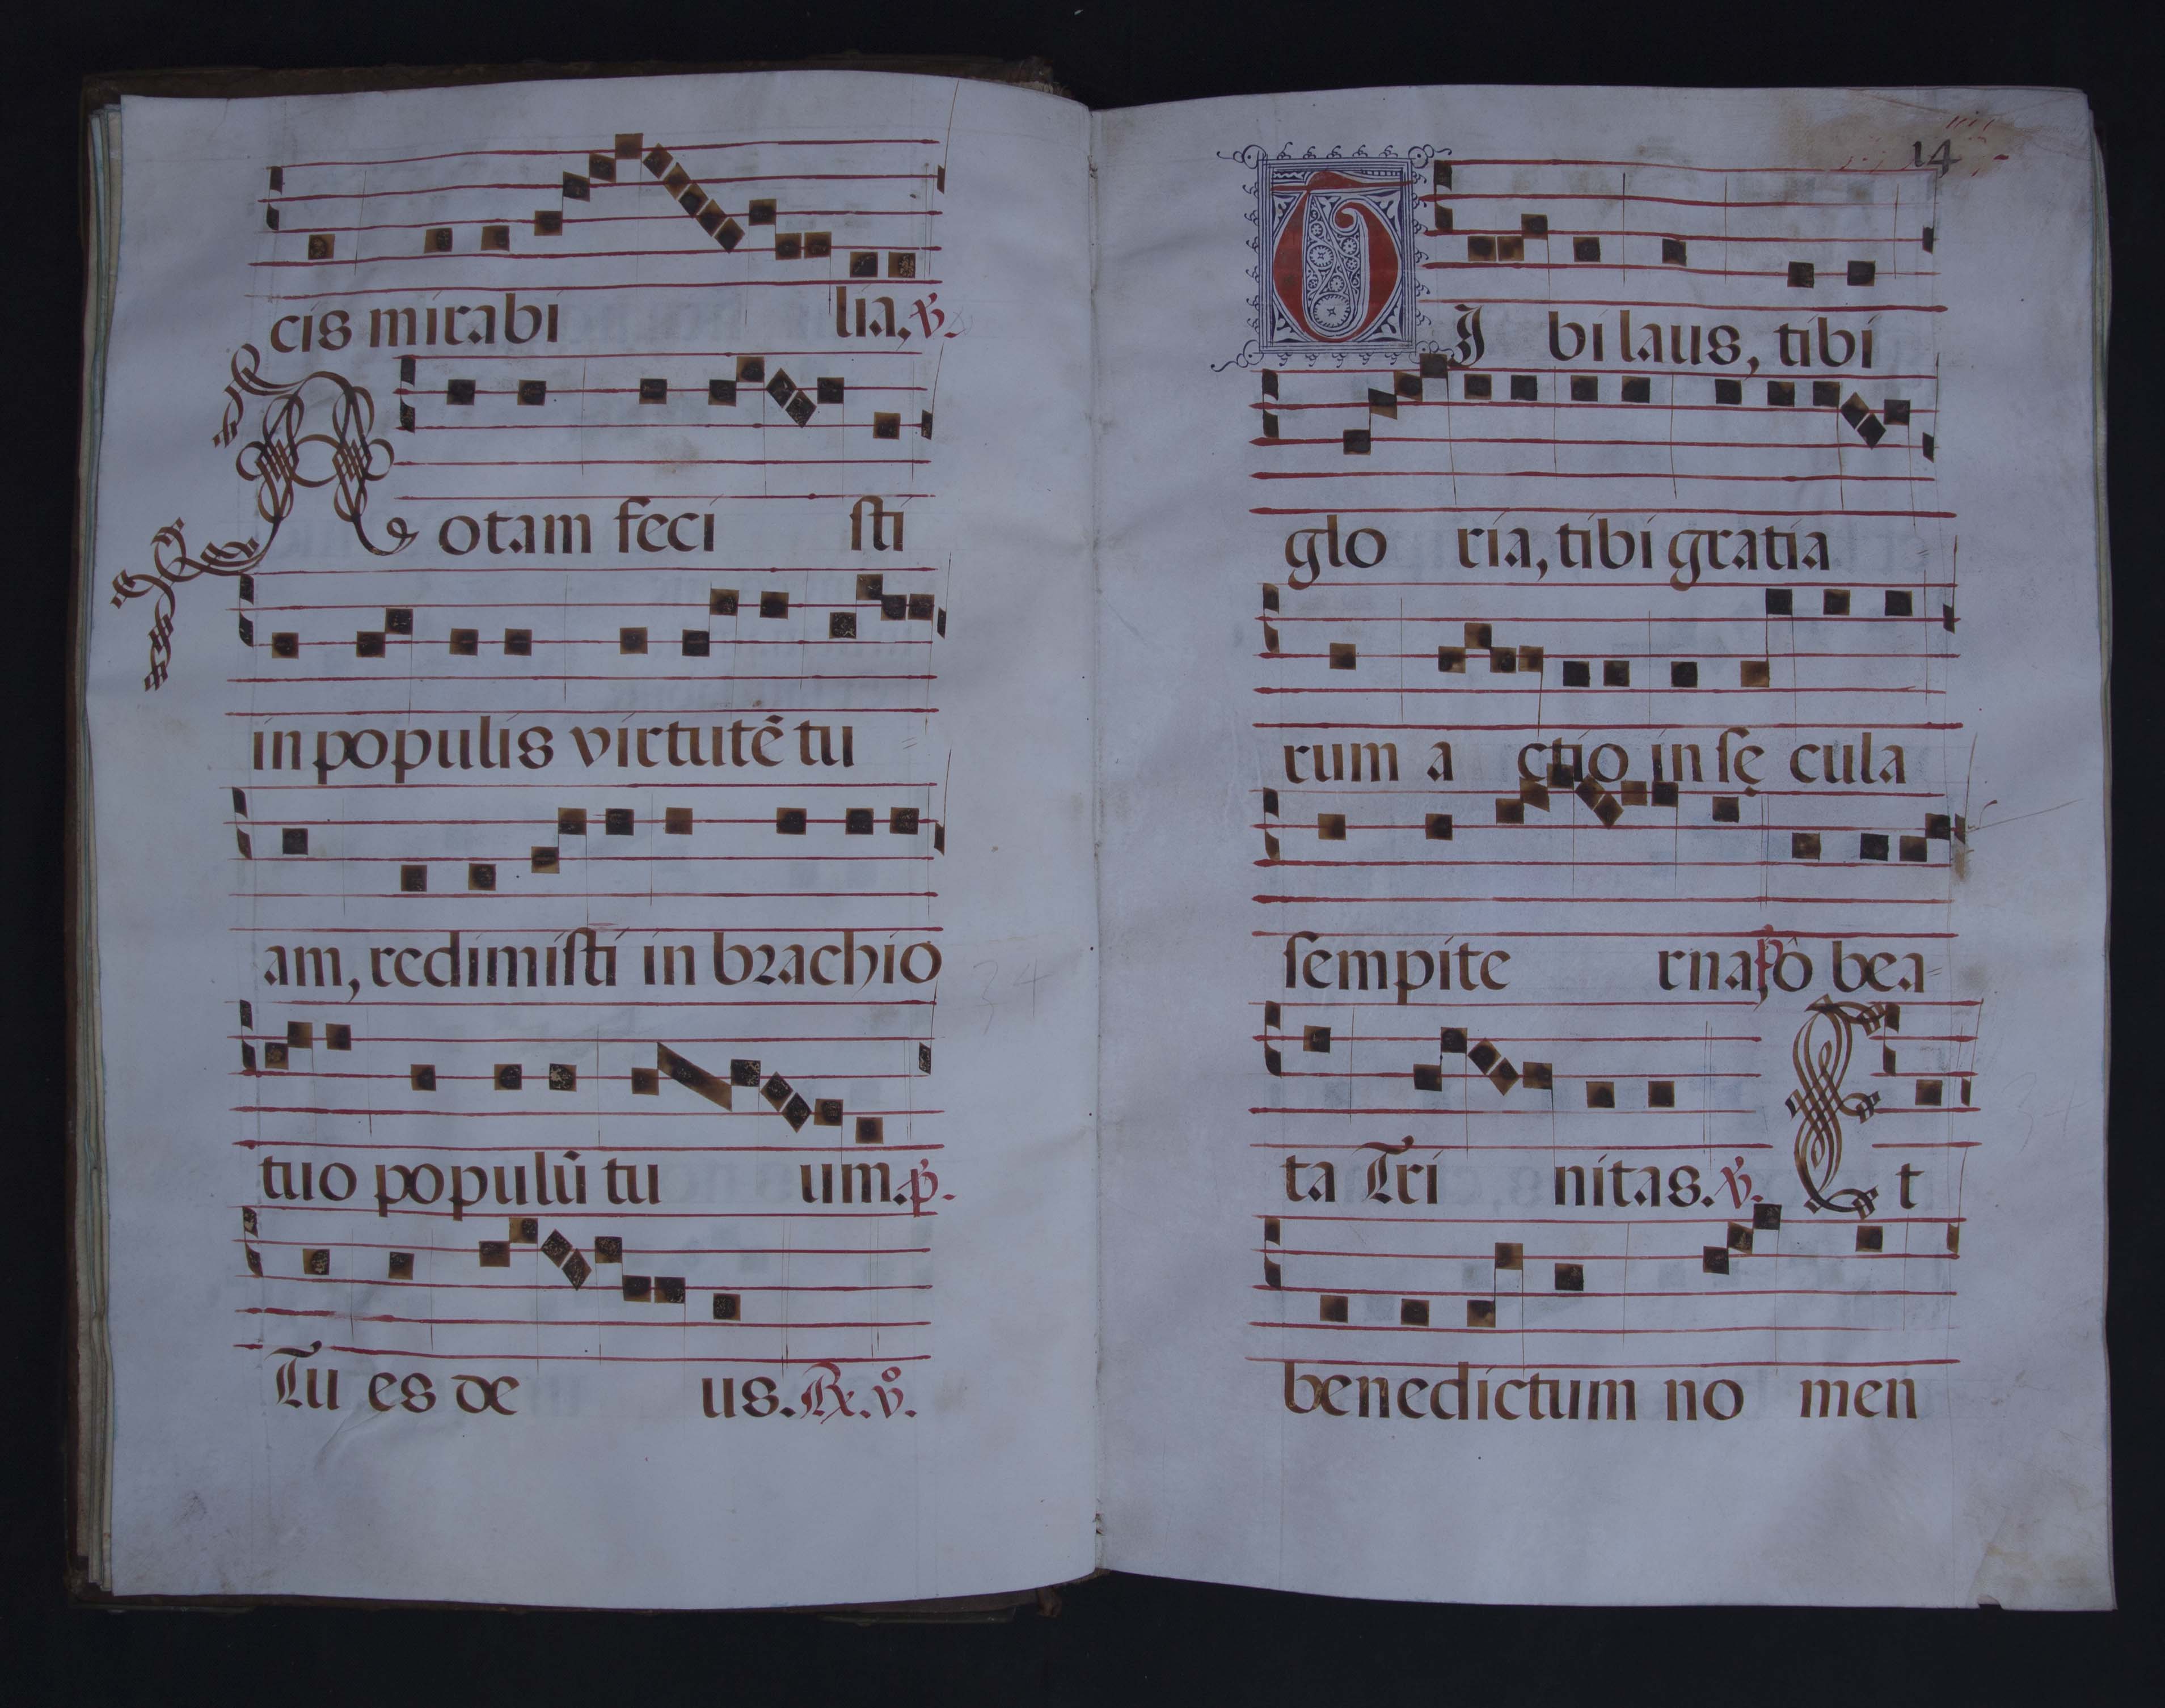 cis mirabi lia, ℣.
N otam feci sti
in populis virtutē tu
am, redimisti in brachio
tuo populū tu um. p.
Tu es de us. ℞. ℣.
14
T I bi laus, tibi
glo ria, tibi gratia
rum a ctio in sę cula
sempite rna, p ô bea-
ta Tri nitas. ℣. E t
benedictum no men